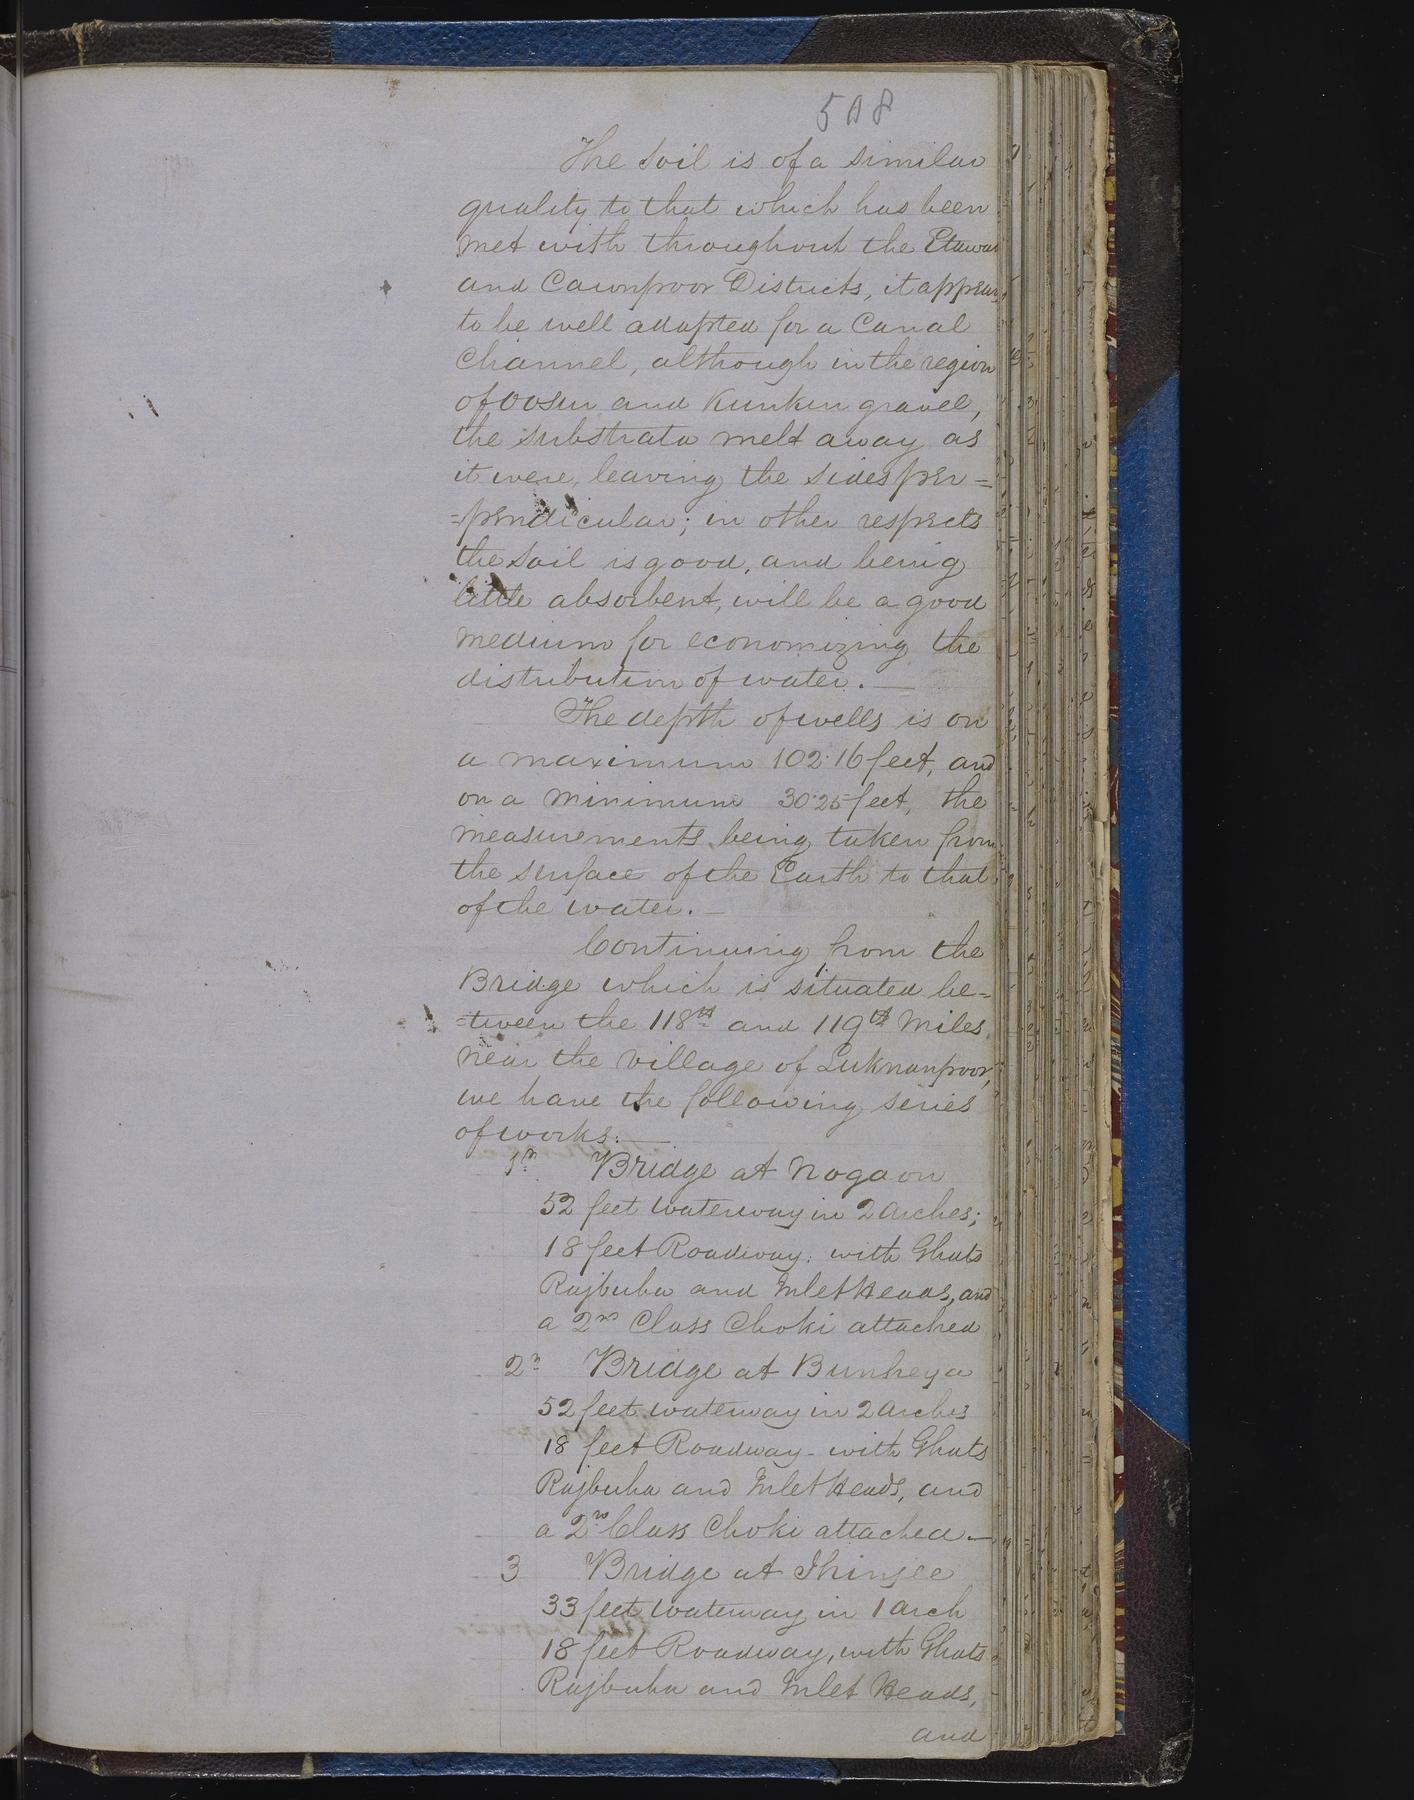 508
The soil is of a similar
quality to that which has been
met with throughout the Etawah
and Cawnpoor Districts, it appears
to be well adapted for a Canal
Channel, although in the region
of oosur and Kunkur gravel,
the substrata melt away as
it were, leaving the sides per=
=pendicular; in other respects
the soil is good, and being
little absorbent, will be a good
medium for economizing the
distribution of water.—
The depth of wells is on
a maximum 102.16 feet, and
on a minimum 30.25 feet, the
measurements being taken from
the surface of the Earth to that
of the water.—
Continuing from the
Bridge which is situated be=
=tween the 118th and 119th Miles
near the Village of Luknanpoor,
we have the following series
of works:—
1st Bridge at Nogaon
52 feet waterway in 2 arches;
18 feet Roadway, with Ghats
Rajbuha and Inlet Heads, and
a 2nd Class Choki attached
2nd Bridge at Bunheya
52 feet waterway in 2 arches
18 feet Roadway - with Ghats
Rajbuha and Inlet Heads, and
a 2nd Class Choki attached.—
3 Bridge at Jhinjee
33 feet waterway in 1 arch
18 feet Roadway, with Ghats
Rajbuha and Inlet Heads,
and